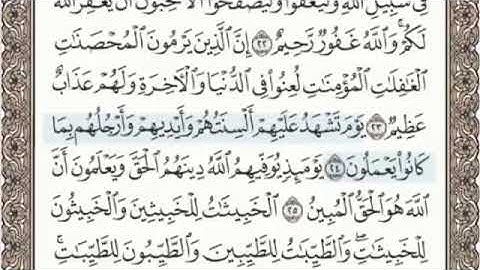 فِى سَبِيلِ ٱللَّهِ وَلْيَعْفُوا۟ وَلْيَصْفَحُوٓا۟ أَلَا تُحِبُّونَ أَن يَغْفِرَ ٱللَّهُ
لَكُمْ وَٱللَّهُ غَفُورٌ رَّحِيمٌ ٢٢ إِنَّ ٱلَّذِينَ يَرْمُونَ ٱلْمُحْصَنَـٰتِ
ٱلْغَـٰفِلَـٰتِ ٱلْمُؤْمِنَـٰتِ لُعِنُوا۟ فِى ٱلدُّنْيَا وَٱلْـَٔاخِرَةِ وَلَهُمْ عَذَابٌ
عَظِيمٌ ٢٣ يَوْمَ تَشْهَدُ عَلَيْهِمْ أَلْسِنَتُهُمْ وَأَيْدِيهِمْ وَأَرْجُلُهُم بِمَا
كَانُوا۟ يَعْمَلُونَ ٢٤ يَوْمَئِذٍ يُوَفِّيهِمُ ٱللَّهُ دِينَهُمُ ٱلْحَقَّ وَيَعْلَمُونَ أَنَّ
ٱللَّهَ هُوَ ٱلْحَقُّ ٱلْمُبِينُ ٢٥ ٱلْخَبِيثَـٰتُ لِلْخَبِيثِينَ وَٱلْخَبِيثُونَ
لِلْخَبِيثَـٰتِ ۖ وَٱلطَّيِّبَـٰتُ لِلطَّيِّبِينَ وَٱلطَّيِّبُونَ لِلطَّيِّبَـٰتِ ۚ